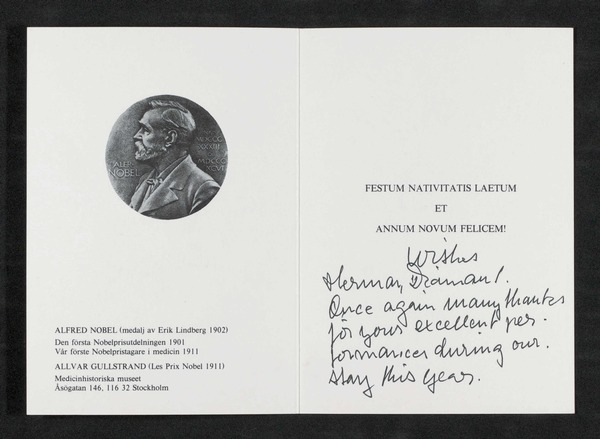 ALFR·
NOBEL
MDCCC
XXXIII
MDCCC
XCVI
ALFRED NOBEL (medalj av Erik Lindberg 1902)
Den första Nobelprisutdelningen 1901
Vår förste Nobelpristagare i medicin 1911
ALLVAR GULLSTRAND (Les Prix Nobel 1911)
Medicinhistoriska museet
Åsögatan 146, 116 32 Stockholm
FESTUM NATIVITATIS LAETUM
ET
ANNUM NOVUM FELICEM!
Wishes
Herman Diamant.
Once again many thanks
for your excellent per-
formances during our
stay this year.